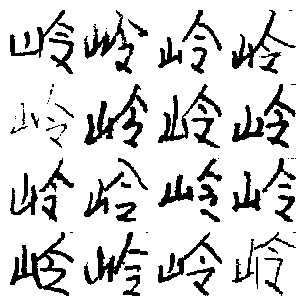 岭岭岭岭
岭岭岭岭
岭岭岭岭
岭岭岭岭